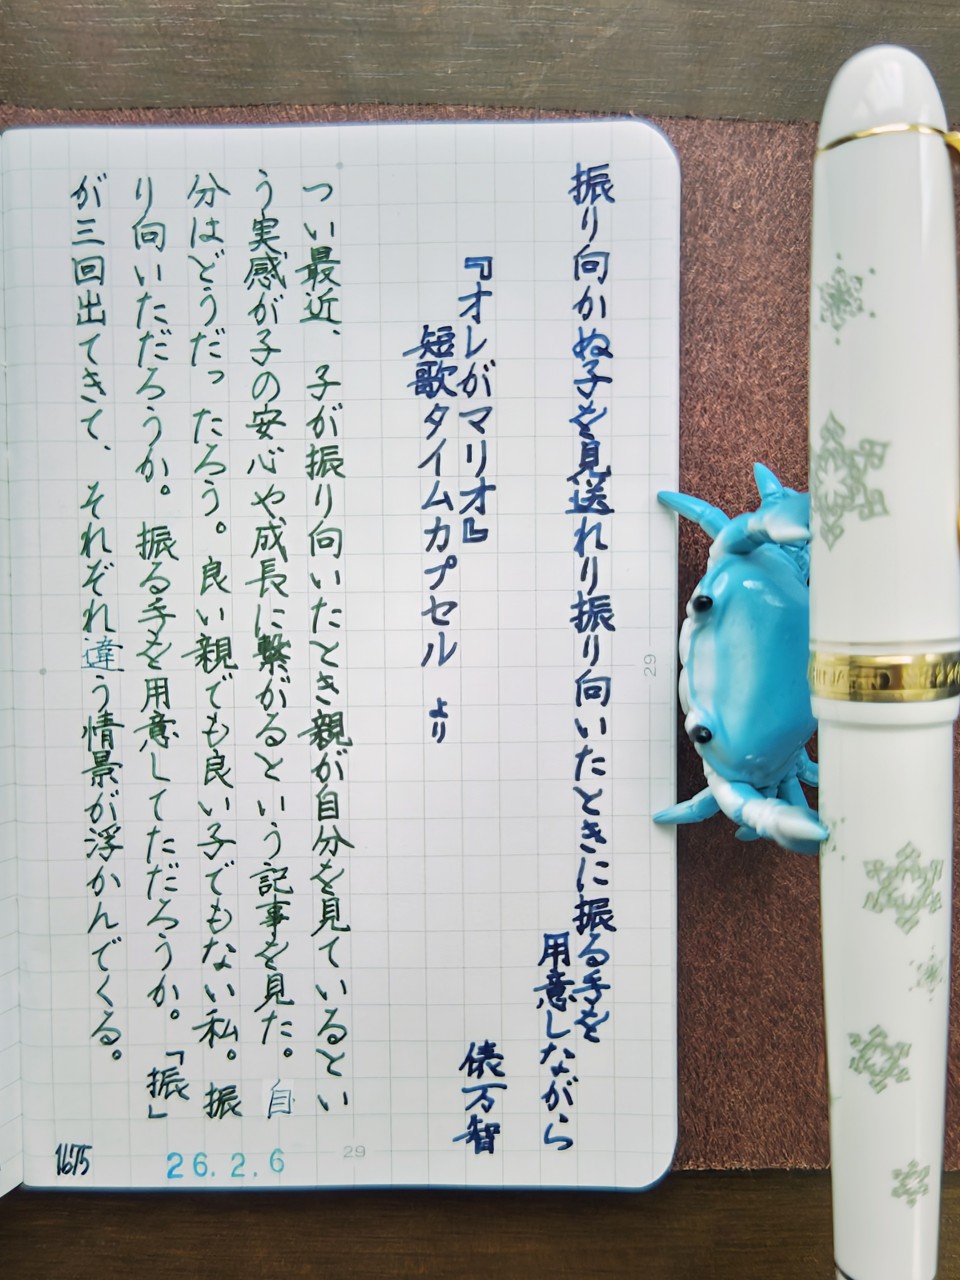 振り向かぬ子を見送れり振り向いたときに振る手を
用意しながら
俵万智
『オレがマリオ』
短歌タイムカプセル より
つい最近、子が振り向いたとき親が自分を見ているとい
う実感が子の安心や成長に繋がるという記事を見た。自
分はどうだったろう。良い親でも良い子でもない私。振
り向いただろうか。振る手を用意してただろうか。「振」
が三回出てきて、それぞれ違う情景が浮かんでくる。
1675
26.2.6
29
29